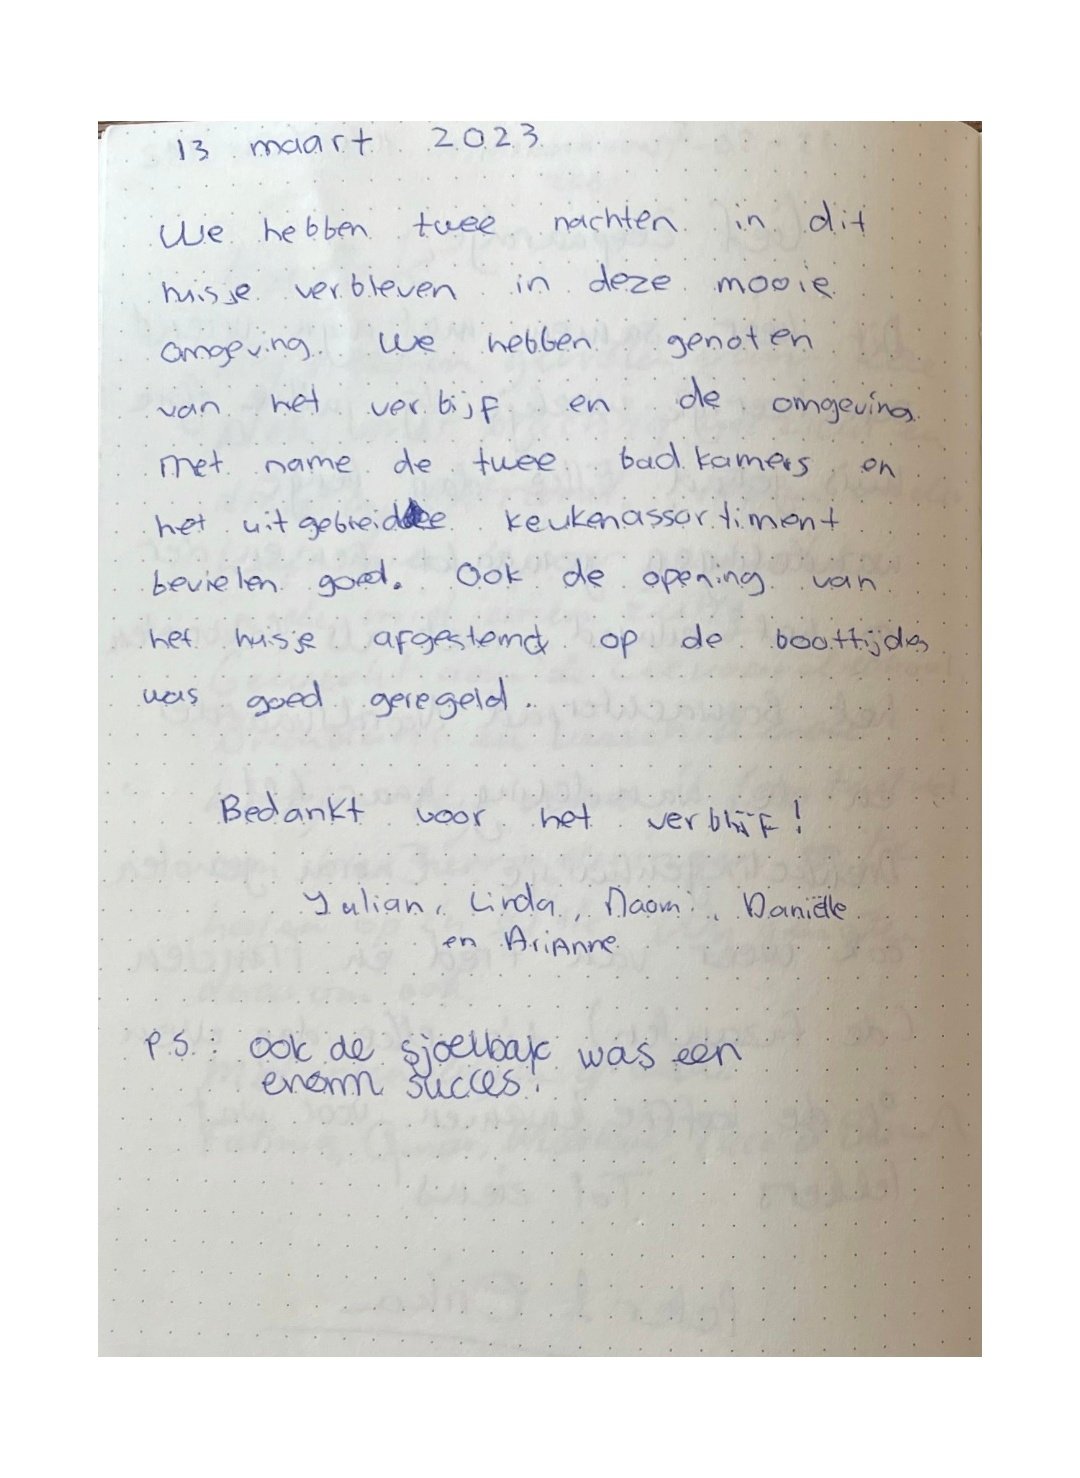 13 maart 2023
We hebben twee nachten in dit
huisje verbleven in deze mooie
omgeving. We hebben genoten
van het verblijf en de omgeving.
Met name de twee badkamers en
het uitgebreide keukenassortiment
bevielen goed. Ook de opening van
het huisje afgestemd op de boottijdes
was goed geregeld.
Bedankt voor het verblijf!
Julian, Linda, Naomi, Daniëlle
en Arianne
P.S.: Ook de sjoelbak was een
enorm succes.